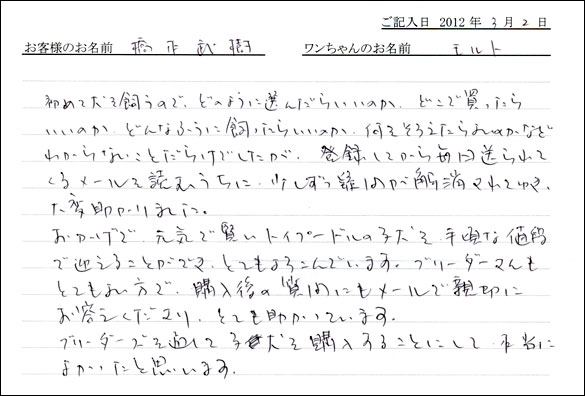 ご記入日 2012年 3月 2日
お客様のお名前 橋本 武樹 ワンちゃんのお名前 モルト
初めて犬を飼うので、どのように選んだらいいのか、どこで買ったら
いいのか、どんなふうに飼ったらいいのか、何をそろえたらよいのかなど
わからないことだらけでしたが、登録してから毎回送られて
くるメールを読むうちに、少しずつ疑問が解消されてゆき、
大変助かりました。
おかげで、元気で賢いトイプードルの子犬を手頃な値段
で迎えることができ、とてもよろこんでいます。ブリーダーさんも
とてもよい方で、購入後の質問にもメールで親切に
お答えくださり、とても助かっています。
ブリーダーズを通して子犬を購入することにして本当に
よかったと思います。